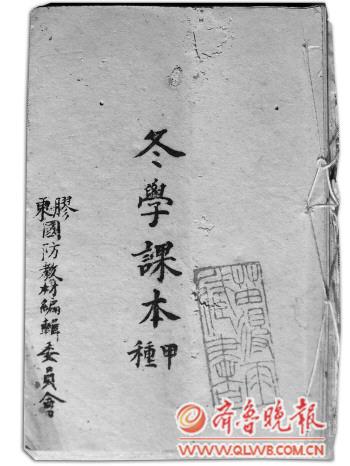 冬學課本
甲種
膠東國防教材編輯委員會
齐鲁晚报
WWW.QLWB.COM.CN